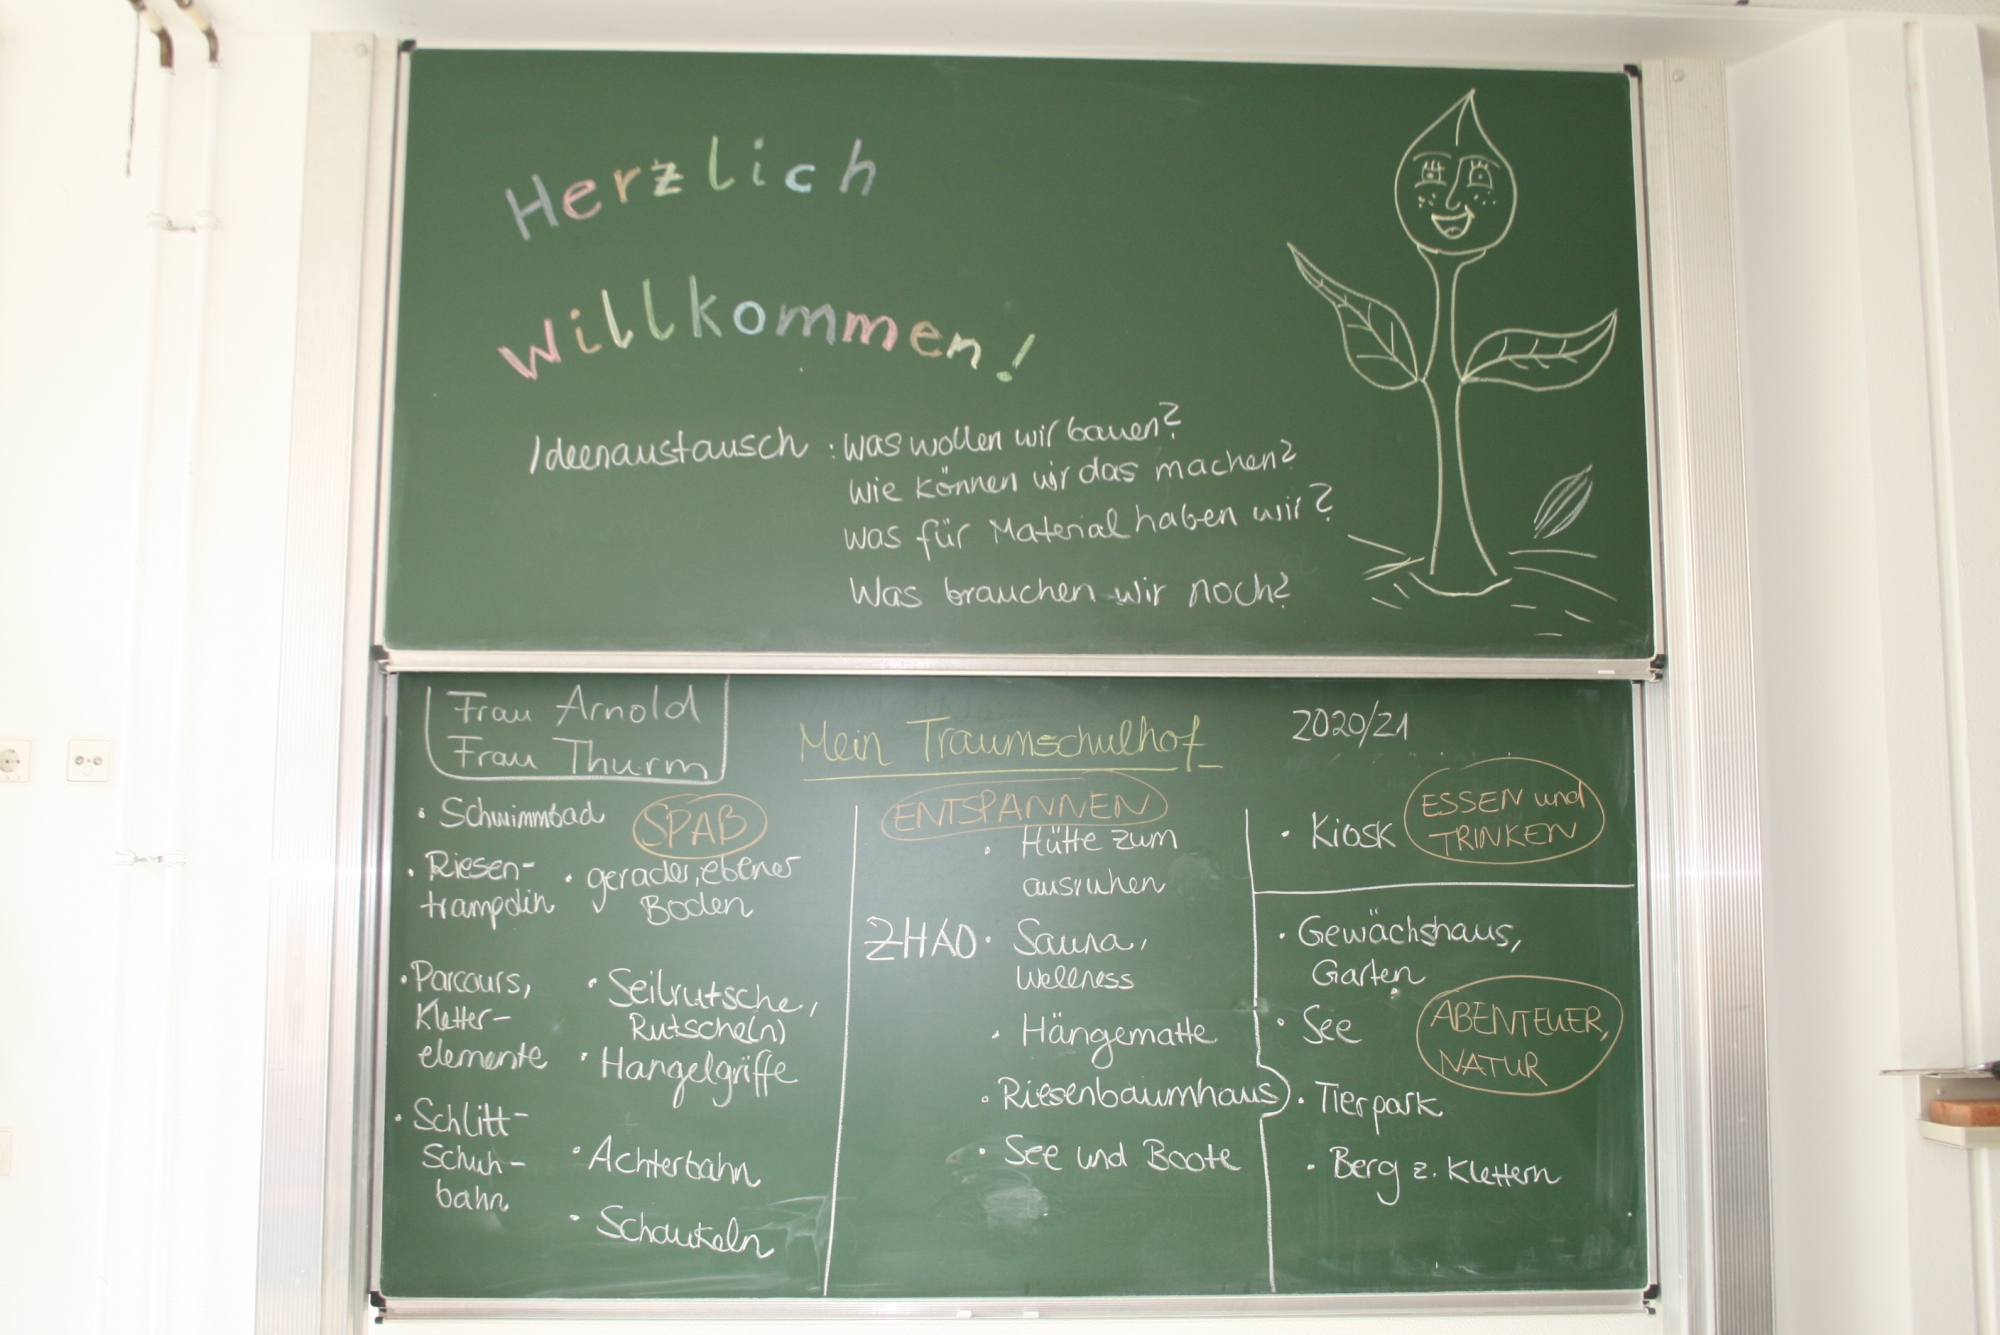 Herzlich
Willkommen!
Ideenaustausch : Was wollen wir bauen?
Wie können wir das machen?
Was für Material haben wir?
Was brauchen wir noch?
Frau Arnold
Frau Thurm
Mein Traumschulhof
2020/21
SPAß
• Schwimmbad
• Riesen-
trampolin
• Parcours,
Kletter-
elemente
• Schlitt-
Schuh-
bahn
• gerader, ebener
Boden
• Seilrutsche,
Rutsche(n)
• Hangelgriffe
• Achterbahn
• Schaukeln
ENTSPANNEN
• Hütte zum
ausruhen
• Sauna,
Wellness
• Hängematte
• Riesenbaumhaus
• See und Boote
ESSEN und
TRINKEN
• Kiosk
• Gewächshaus,
Garten
ABENTEUER,
NATUR
• See
• Tierpark
• Berg z. Klettern